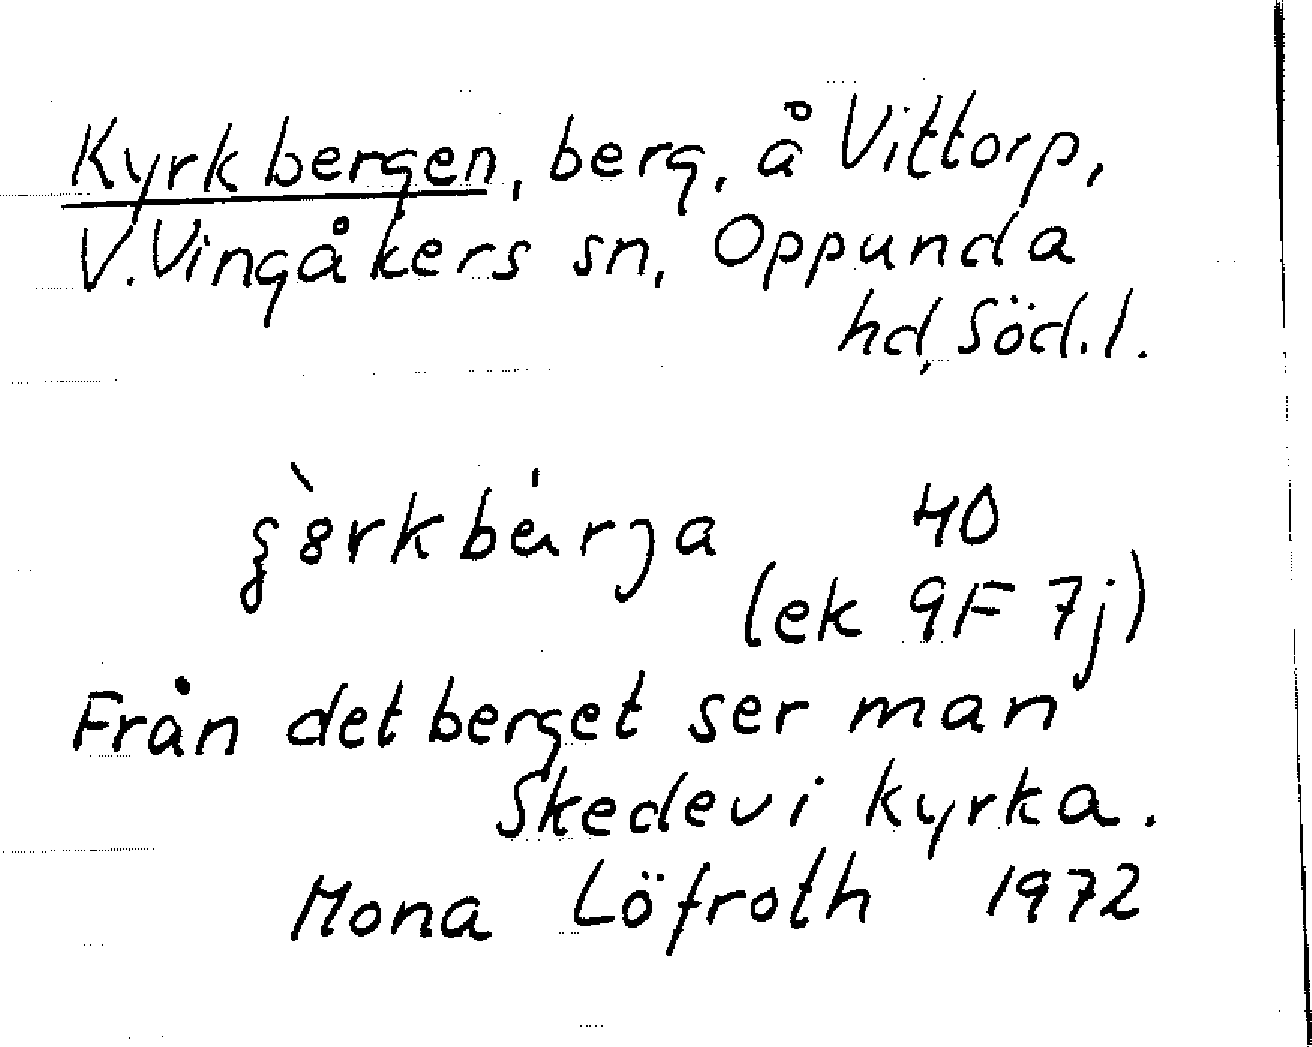 Kyrkbergen, berg, å Vittorp,
V. Vingåkers sn, Oppunda
hd, Söd.l.
40
(ek 9F 7j)
Från det berget ser man
Skedevi kyrka.
Mona Löfroth 1972